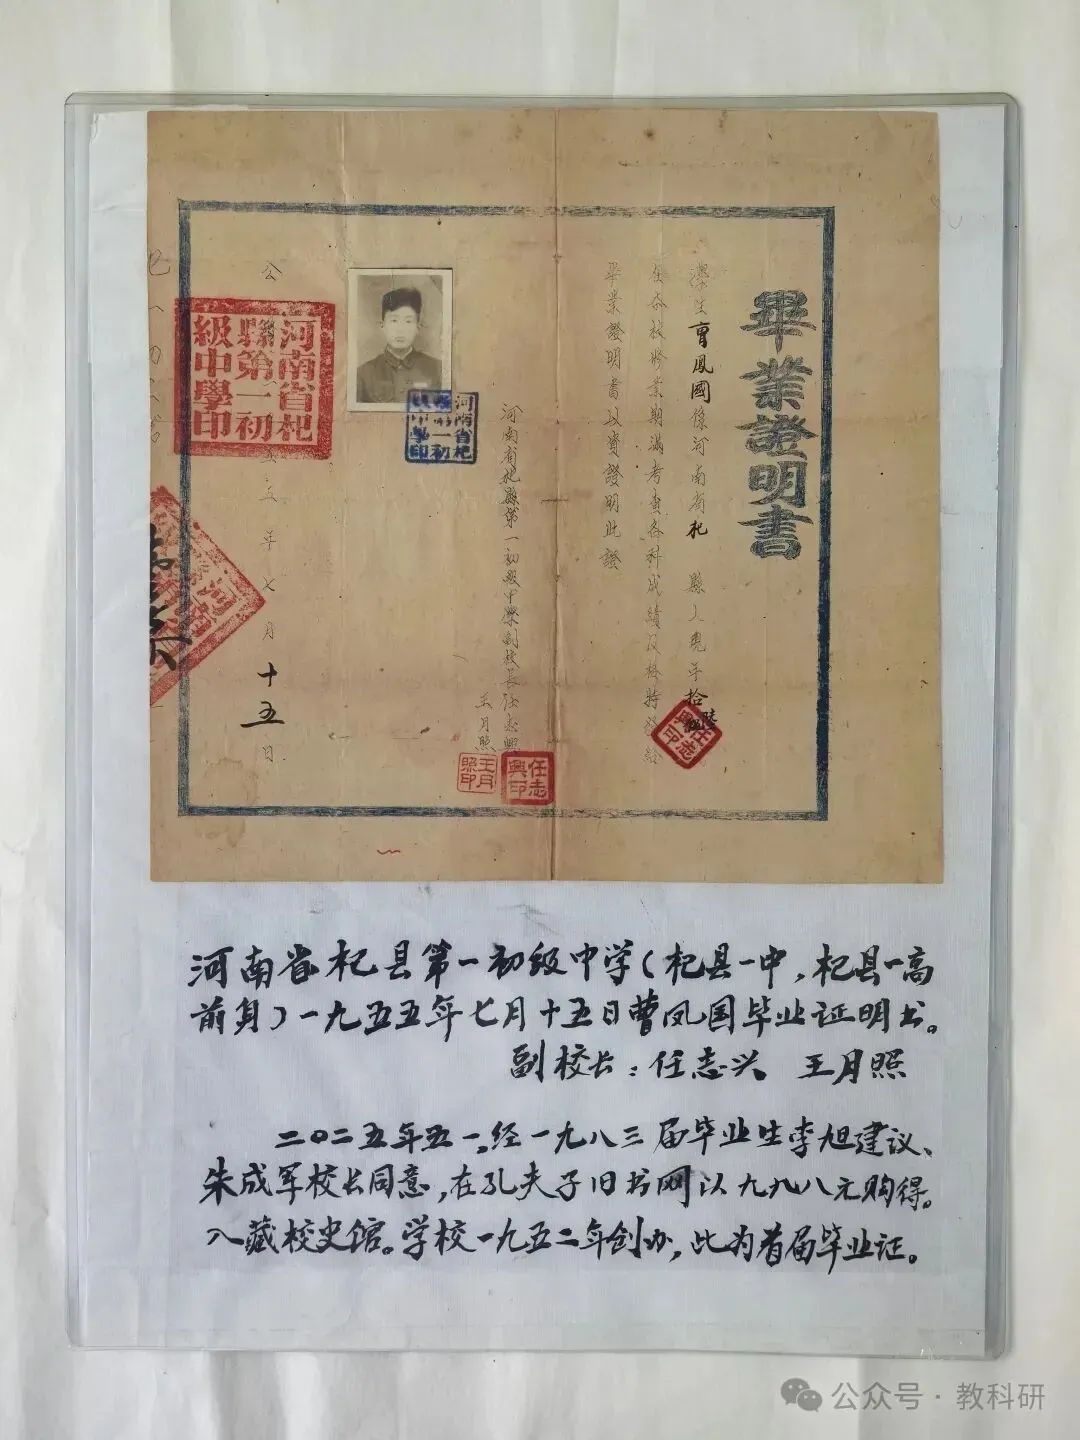 畢業證明書
學生曹鳳國係河南省杞縣人現年拾陸
在本校修業期滿考查各科成績及格特發給
畢業證明書以資證明此證
河南省杞縣第一初級中學副校長任志興
王月照
任志興印
王月照印
任志興印
河南省杞縣第一初級中學印
公
五五年七月十五日
河南省杞縣第一初級中學印
河南省杞县第一初级中学(杞县一中,杞县一高
前身)一九五五年七月十五日曹凤国毕业证明书。
副校长:任志兴、王月照
二〇二五年五一,经一九八三届毕业生李旭建议、
朱成军校长同意,在孔夫子旧书网以九九八元购得。
入藏校史馆。学校一九五二年创办,此为首届毕业证。
公众号·教科研